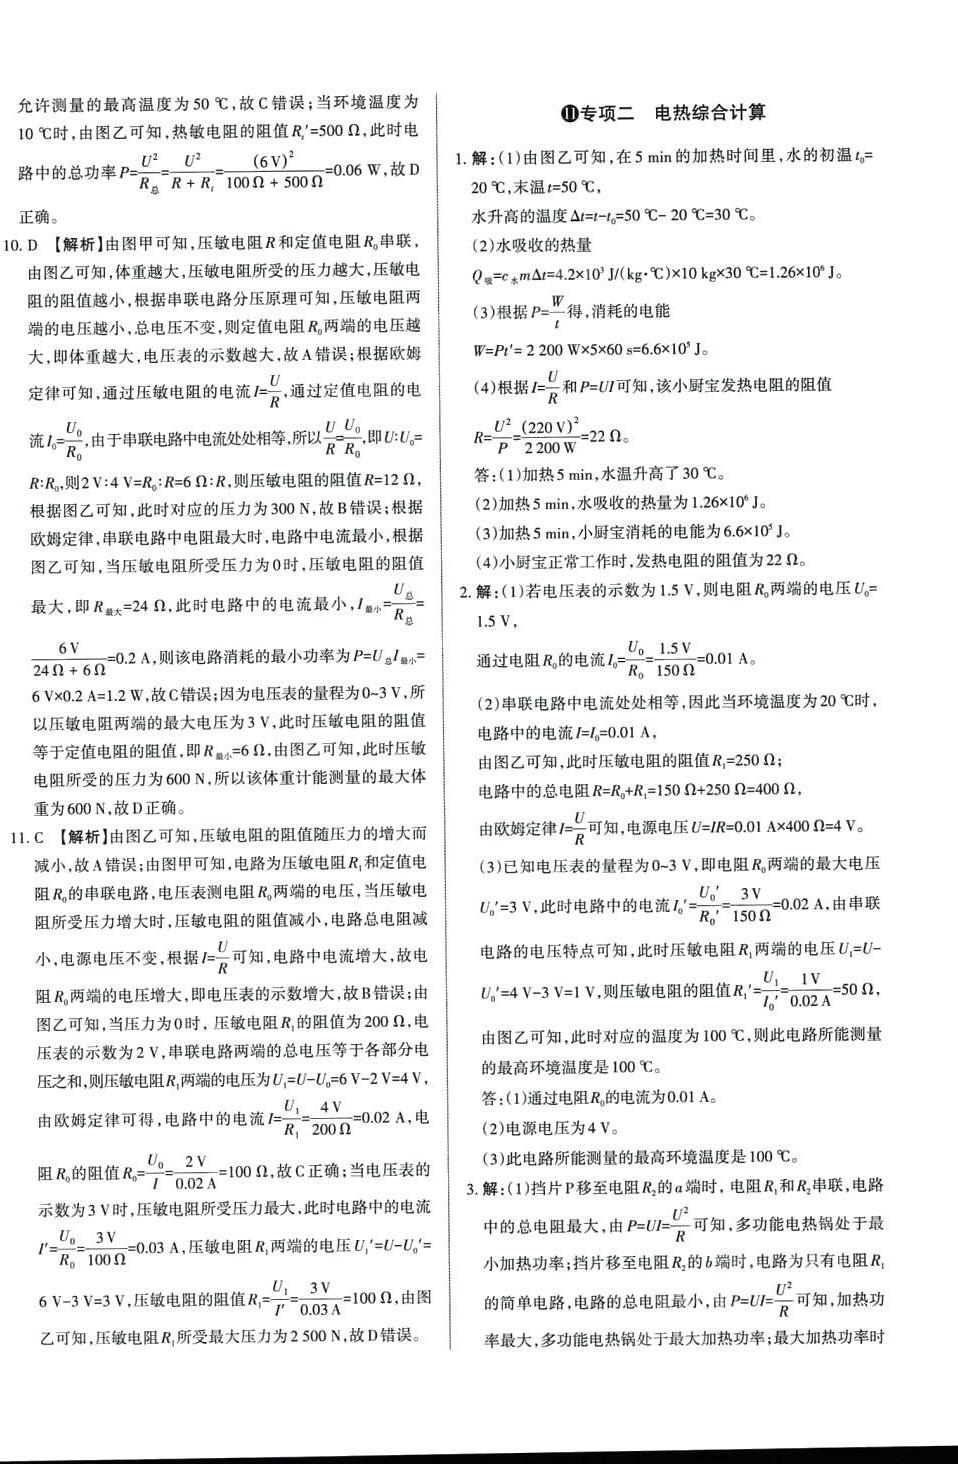 允许测量的最高温度为 50 ℃,故 C 错误;当环境温度为
10 ℃时,由图乙可知,热敏电阻的阻值 Rt′=500 Ω,此时电
路中的总功率 P=U²/R总=U²/(R+Rt)=(6 V)²/(100 Ω+500 Ω)=0.06 W,故 D
正确。
10. D 【解析】由图甲可知,压敏电阻 R 和定值电阻 R₀串联,
由图乙可知,体重越大,压敏电阻所受的压力越大,压敏电
阻的阻值越小,根据串联电路分压原理可知,压敏电阻两
端的电压越小,总电压不变,则定值电阻 R₀两端的电压越
大,即体重越大,电压表的示数越大,故 A 错误;根据欧姆
定律可知,通过压敏电阻的电流 I=U/R,通过定值电阻的电
流 I₀=U₀/R₀,由于串联电路中电流处处相等,所以U/R=U₀/R₀,即U∶U₀=
R∶R₀,则2 V∶4 V=R₀∶R=6 Ω∶R,则压敏电阻的阻值R=12 Ω,
根据图乙可知,此时对应的压力为 300 N,故 B 错误;根据
欧姆定律,串联电路中电阻最大时,电路中电流最小,根据
图乙可知,当压敏电阻所受压力为 0 时,压敏电阻的阻值
最大,即 R最大=24 Ω,此时电路中的电流最小,I最小=U总/R总=
6 V/(24 Ω+6 Ω)=0.2 A,则该电路消耗的最小功率为P=U总I最小=
6 V×0.2 A=1.2 W,故C错误;因为电压表的量程为0~3 V,所
以压敏电阻两端的最大电压为 3 V,此时压敏电阻的阻值
等于定值电阻的阻值,即R最小=6 Ω,由图乙可知,此时压敏
电阻所受的压力为 600 N,所以该体重计能测量的最大体
重为600 N,故D正确。
11. C 【解析】由图乙可知,压敏电阻的阻值随压力的增大而
减小,故 A 错误;由图甲可知,电路为压敏电阻 R₁和定值电
阻 R₀的串联电路,电压表测电阻 R₀两端的电压,当压敏电
阻所受压力增大时,压敏电阻的阻值减小,电路总电阻减
小,电源电压不变,根据 I=U/R可知,电路中电流增大,故电
阻 R₀两端的电压增大,即电压表的示数增大,故 B 错误;由
图乙可知,当压力为 0 时,压敏电阻 R₁的阻值为 200 Ω,电
压表的示数为 2 V,串联电路两端的总电压等于各部分电
压之和,则压敏电阻R₁两端的电压为U₁=U-U₀=6 V-2 V=4 V,
由欧姆定律可得,电路中的电流 I=U₁/R₁=4 V/200 Ω=0.02 A,电
阻 R₀的阻值 R₀=U₀/I=2 V/0.02 A=100 Ω,故 C 正确;当电压表的
示数为 3 V 时,压敏电阻所受压力最大,此时电路中的电流
I′=U₀/R₀=3 V/100 Ω=0.03 A,压敏电阻 R₁两端的电压 U₁′=U-U₀′=
6 V-3 V=3 V,压敏电阻的阻值R₁=U₁/I′=3 V/0.03 A=100 Ω,由图
乙可知,压敏电阻 R₁所受最大压力为 2 500 N,故 D 错误。
⓫专项二 电热综合计算
1. 解:(1)由图乙可知,在 5 min 的加热时间里,水的初温 t₀=
20 ℃,末温t=50 ℃,
水升高的温度 Δt=t-t₀=50 ℃-20 ℃=30 ℃。
(2)水吸收的热量
Q吸=c水mΔt=4.2×10³ J/(kg·℃)×10 kg×30 ℃=1.26×10⁶ J。
(3)根据 P=W/t得,消耗的电能
W=Pt′= 2 200 W×5×60 s=6.6×10⁵ J。
(4)根据 I=U/R和P=UI可知,该小厨宝发热电阻的阻值
R=U²/P=(220 V)²/2 200 W=22 Ω。
答:(1)加热 5 min,水温升高了 30 ℃。
(2)加热 5 min,水吸收的热量为 1.26×10⁶ J。
(3)加热 5 min,小厨宝消耗的电能为 6.6×10⁵ J。
(4)小厨宝正常工作时,发热电阻的阻值为 22 Ω。
2. 解:(1)若电压表的示数为 1.5 V,则电阻 R₀两端的电压 U₀=
1.5 V,
通过电阻 R₀的电流 I₀=U₀/R₀=1.5 V/150 Ω=0.01 A。
(2)串联电路中电流处处相等,因此当环境温度为 20 ℃时,
电路中的电流 I=I₀=0.01 A,
由图乙可知,此时压敏电阻的阻值 R₁=250 Ω;
电路中的总电阻 R=R₀+R₁=150 Ω+250 Ω=400 Ω,
由欧姆定律 I=U/R可知,电源电压 U=IR=0.01 A×400 Ω=4 V。
(3)已知电压表的量程为 0~3 V,即电阻 R₀两端的最大电压
U₀′=3 V,此时电路中的电流 I₀′=U₀′/R₀′=3 V/150 Ω=0.02 A,由串联
电路的电压特点可知,此时压敏电阻 R₁两端的电压 U₁=U-
U₀′=4 V-3 V=1 V,则压敏电阻的阻值 R₁′=U₁/I₀′=1 V/0.02 A=50 Ω,
由图乙可知,此时对应的温度为 100 ℃,则此电路所能测量
的最高环境温度是 100 ℃。
答:(1)通过电阻 R₀的电流为 0.01 A。
(2)电源电压为 4 V。
(3)此电路所能测量的最高环境温度是 100 ℃。
3. 解:(1)挡片 P 移至电阻 R₂的 a 端时,电阻 R₁和 R₂串联,电路
中的总电阻最大,由 P=UI=U²/R可知,多功能电热锅处于最
小加热功率;挡片移至电阻 R₂的 b 端时,电路为只有电阻 R₁
的简单电路,电路的总电阻最小,由 P=UI=U²/R可知,加热功
率最大,多功能电热锅处于最大加热功率;最大加热功率时